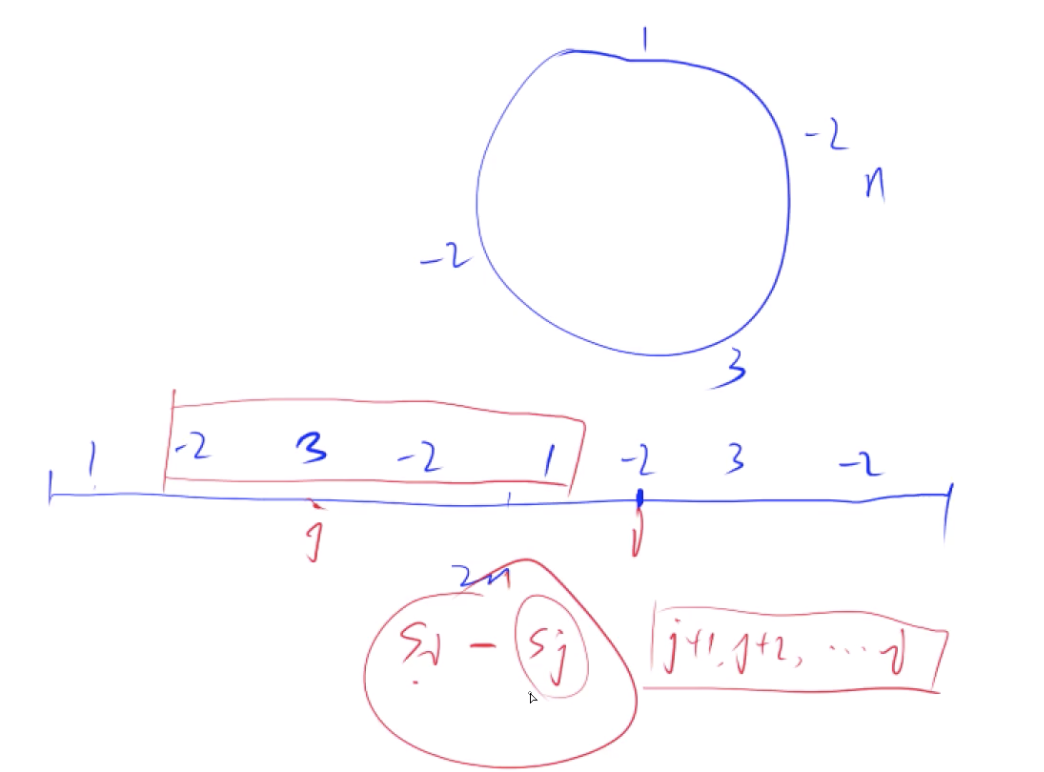 1
-2
n
-2
3
1 -2 3 -2 1 -2 3 -2
j i
2n
Si - Sj j+1, j+2, ... i